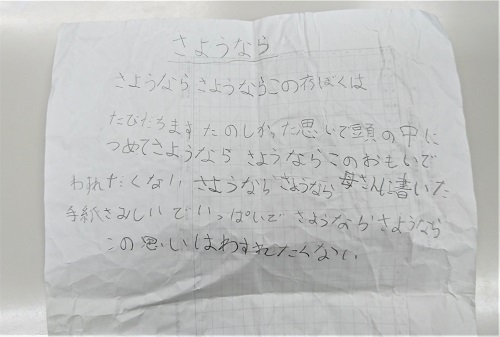 さようなら
さようなら さようならこの夜ぼくは
たびだちます たのしかった思いで頭の中に
つめてさようなら さようならこのおもいで
わすれたくない さようならさようなら 母さんに書いた
手紙さみしいでいっぱいで さようならさようなら
この思いはわすれたくない